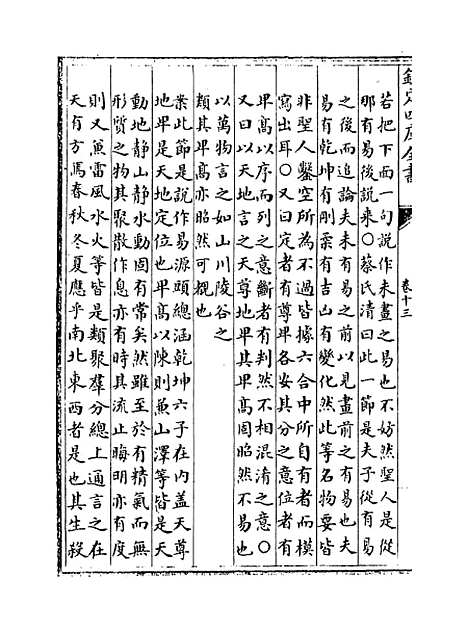 欽定四庫全書
卷十三
若把下面一句說作未畫之易也不妨然聖人是從
那有易後說來○蔡氏清曰此一節是夫子從有易
之後而追論夫未有易之前以見畫前之有易也夫
易有乾坤有剛柔有吉凶有變化然此等名物要皆
非聖人鑿空所為不過皆據六合中所自有者而模
寫出耳○又曰定者有尊卑各安其分之意位者有
卑髙以序而列之意斷者有判然不相混淆之意○
又曰以天地言之天尊地卑其卑髙固昭然不易也
以萬物言之如山川陵谷之
類其卑髙亦昭然可覩也
案此節是說作易源頭總涵乾坤六子在内盖天尊
地卑是天地定位也卑髙以陳則兼山澤等皆是天
動地静山静水動固有常矣然雖至於有精氣而無
形質之物其聚散作息亦有時其流止晦明亦有度
則又兼雷風水火等皆是類聚羣分總上通言之在
天有方焉春秋冬夏應乎南北東西者是也其生殺